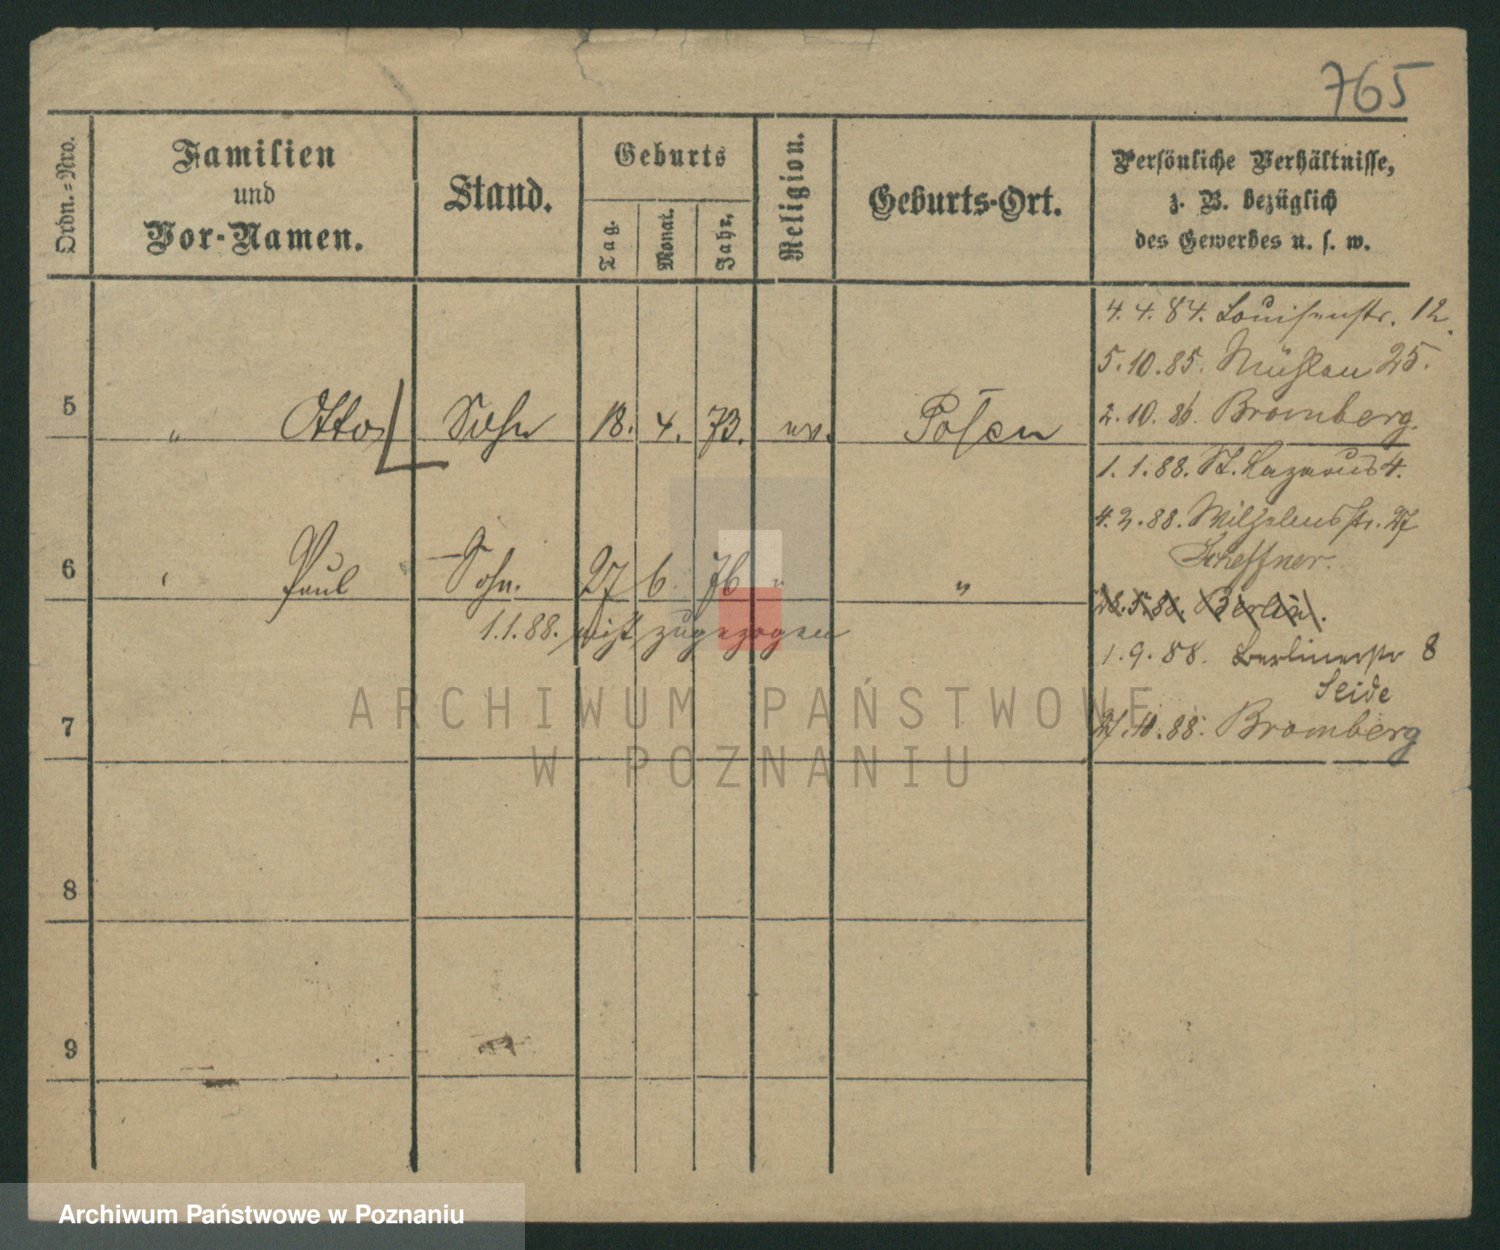 765
Ordn.=Nro.
Familien
und
Vor-Namen.
Stand.
Geburts
Tag.
Monat.
Jahr.
Religion.
Geburts-Ort.
Persönliche Verhältnisse,
z. B. bezüglich
des Gewerbes u. s. w.
4. 4. 84. Louisenstr. 12.
5. 10. 85. Mühlen 25.
2. 10. 86. Bromberg.
5 " Otto Sohn 18. 4. 73. ev. Posen
1. 1. 88. St. Lazarus 4.
4. 2. 88. Wilhelmsstr. 27
Scheffner.
6 " Paul Sohn. 27 6. 76 " "
Berlin.
1.1.88. nicht zugezogen
1. 9. 88. Berlinerstr 8
Seide
7
27. 10. 88. Bromberg
8
9
ARCHIWUM PAŃSTWOWE
W POZNANIU
Archiwum Państwowe w Poznaniu